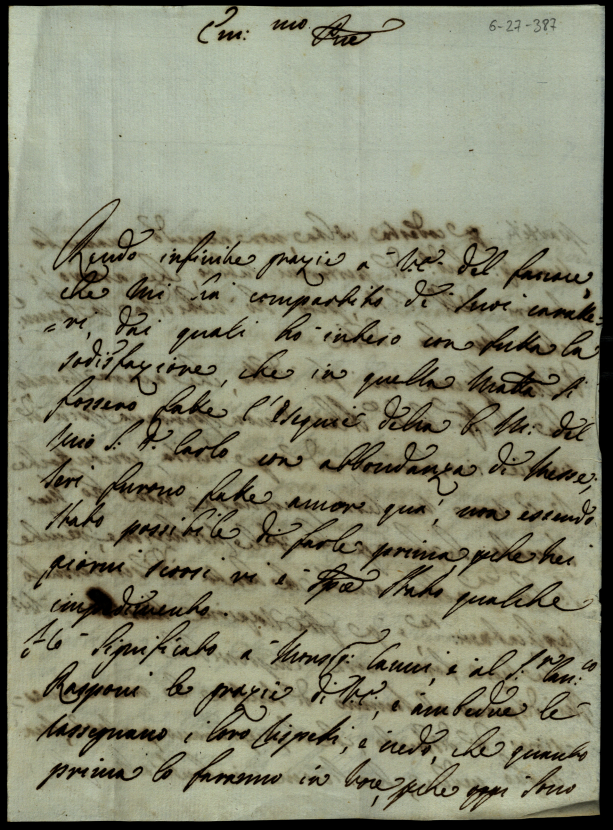 6-27-387
Em:mo Pre
Rendo infinite grazie a V.E. del favore,
che mi hà compartito di suoi caratte=
=ri, dai quali hò inteso con tutta la
sodisfazione, che in quella Mattā si
fossero fatte l'Esequie della b. M: del
mio S. D. Carlo con abbondanza di Messe;
Ieri furono fatte ancor quà, non essendo
stato possibile di farle prima, pche nei
giorni scorsi vi è stato qualche
impedimento.
Hò significato a Mons.r e al S.r
Rasponi le grazie di V.E, e ambedue le
rassegnano i loro rispetti, e credo, che quanto
prima lo faranno in voce, pche oggi sono